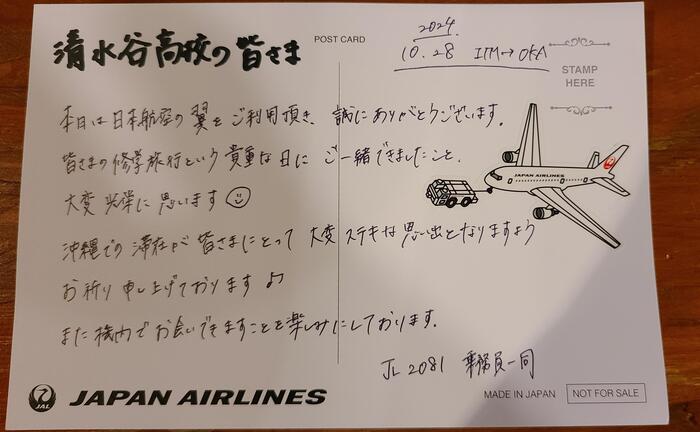 清水谷高校の皆さま
POST CARD
2024.
10.28 ITM→OKA
STAMP
HERE
本日は日本航空の翼をご利用頂き、誠にありがとうございます。
皆さまの修学旅行という貴重な日にご一緒できましたこと、
大変光栄に思います
JAPAN AIRLINES
沖縄での滞在が皆さまにとって大変ステキな思い出となりますよう
お祈り申し上げております♪
また機内でお会いできますことを楽しみにしております。
JL2081 乗務員一同
JAL JAPAN AIRLINES
MADE IN JAPAN NOT FOR SALE